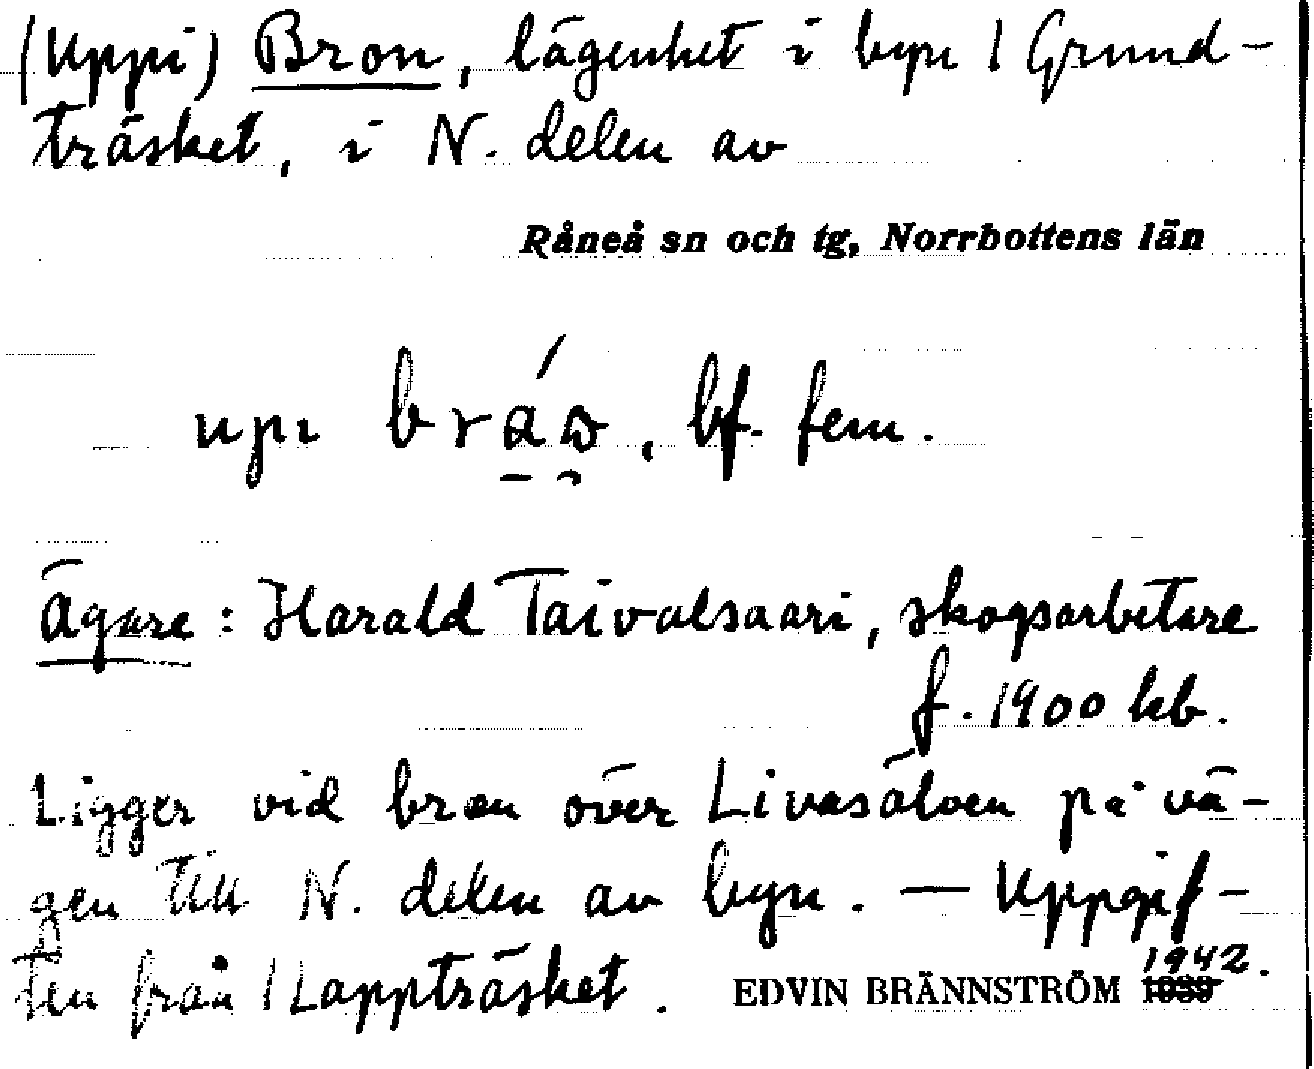 (Uppi) Bron, lägenhet i byn 1 Grund-
träsket, i N. delen av
Råneå sn och tg, Norrbottens län
upi , bf. fem.
Ägare: Harald Taivalsaari, skogsarbetare
f. 1900 kb.
Ligger vid bron över Livasälven på vä-
gen till N. delen av byn. — Uppgif-
ten från 1 Lappträsket. EDVIN BRÄNNSTRÖM 1942.